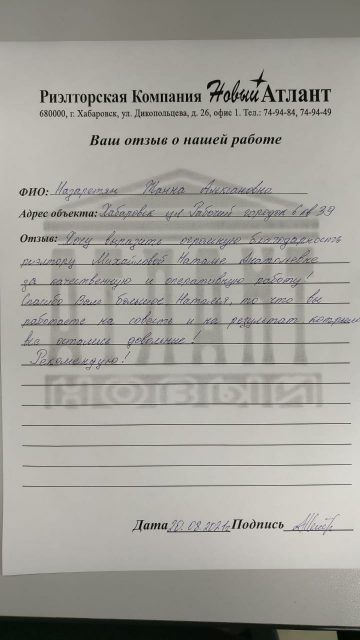 Риэлторская Компания Новый Атлант
680000, г. Хабаровск, ул. Дикопольцева, д. 26, офис 1. Тел.: 74-94-84, 74-94-49
Ваш отзыв о нашей работе
ФИО: Назаретян Жанна Алексановна
Адрес объекта: Хабаровск ул Рабочий городок 6 кв 39
Отзыв: Хочу выразить огромную благодарность
риэлтору Михайловой Наталье Анатольевне
за качественную и оперативную работу!
Спасибо Вам большое Наталья, то что вы
работаете на совесть и на результат которым
все остались довольные!
Рекомендую!
Дата 20.08.2021г Подпись